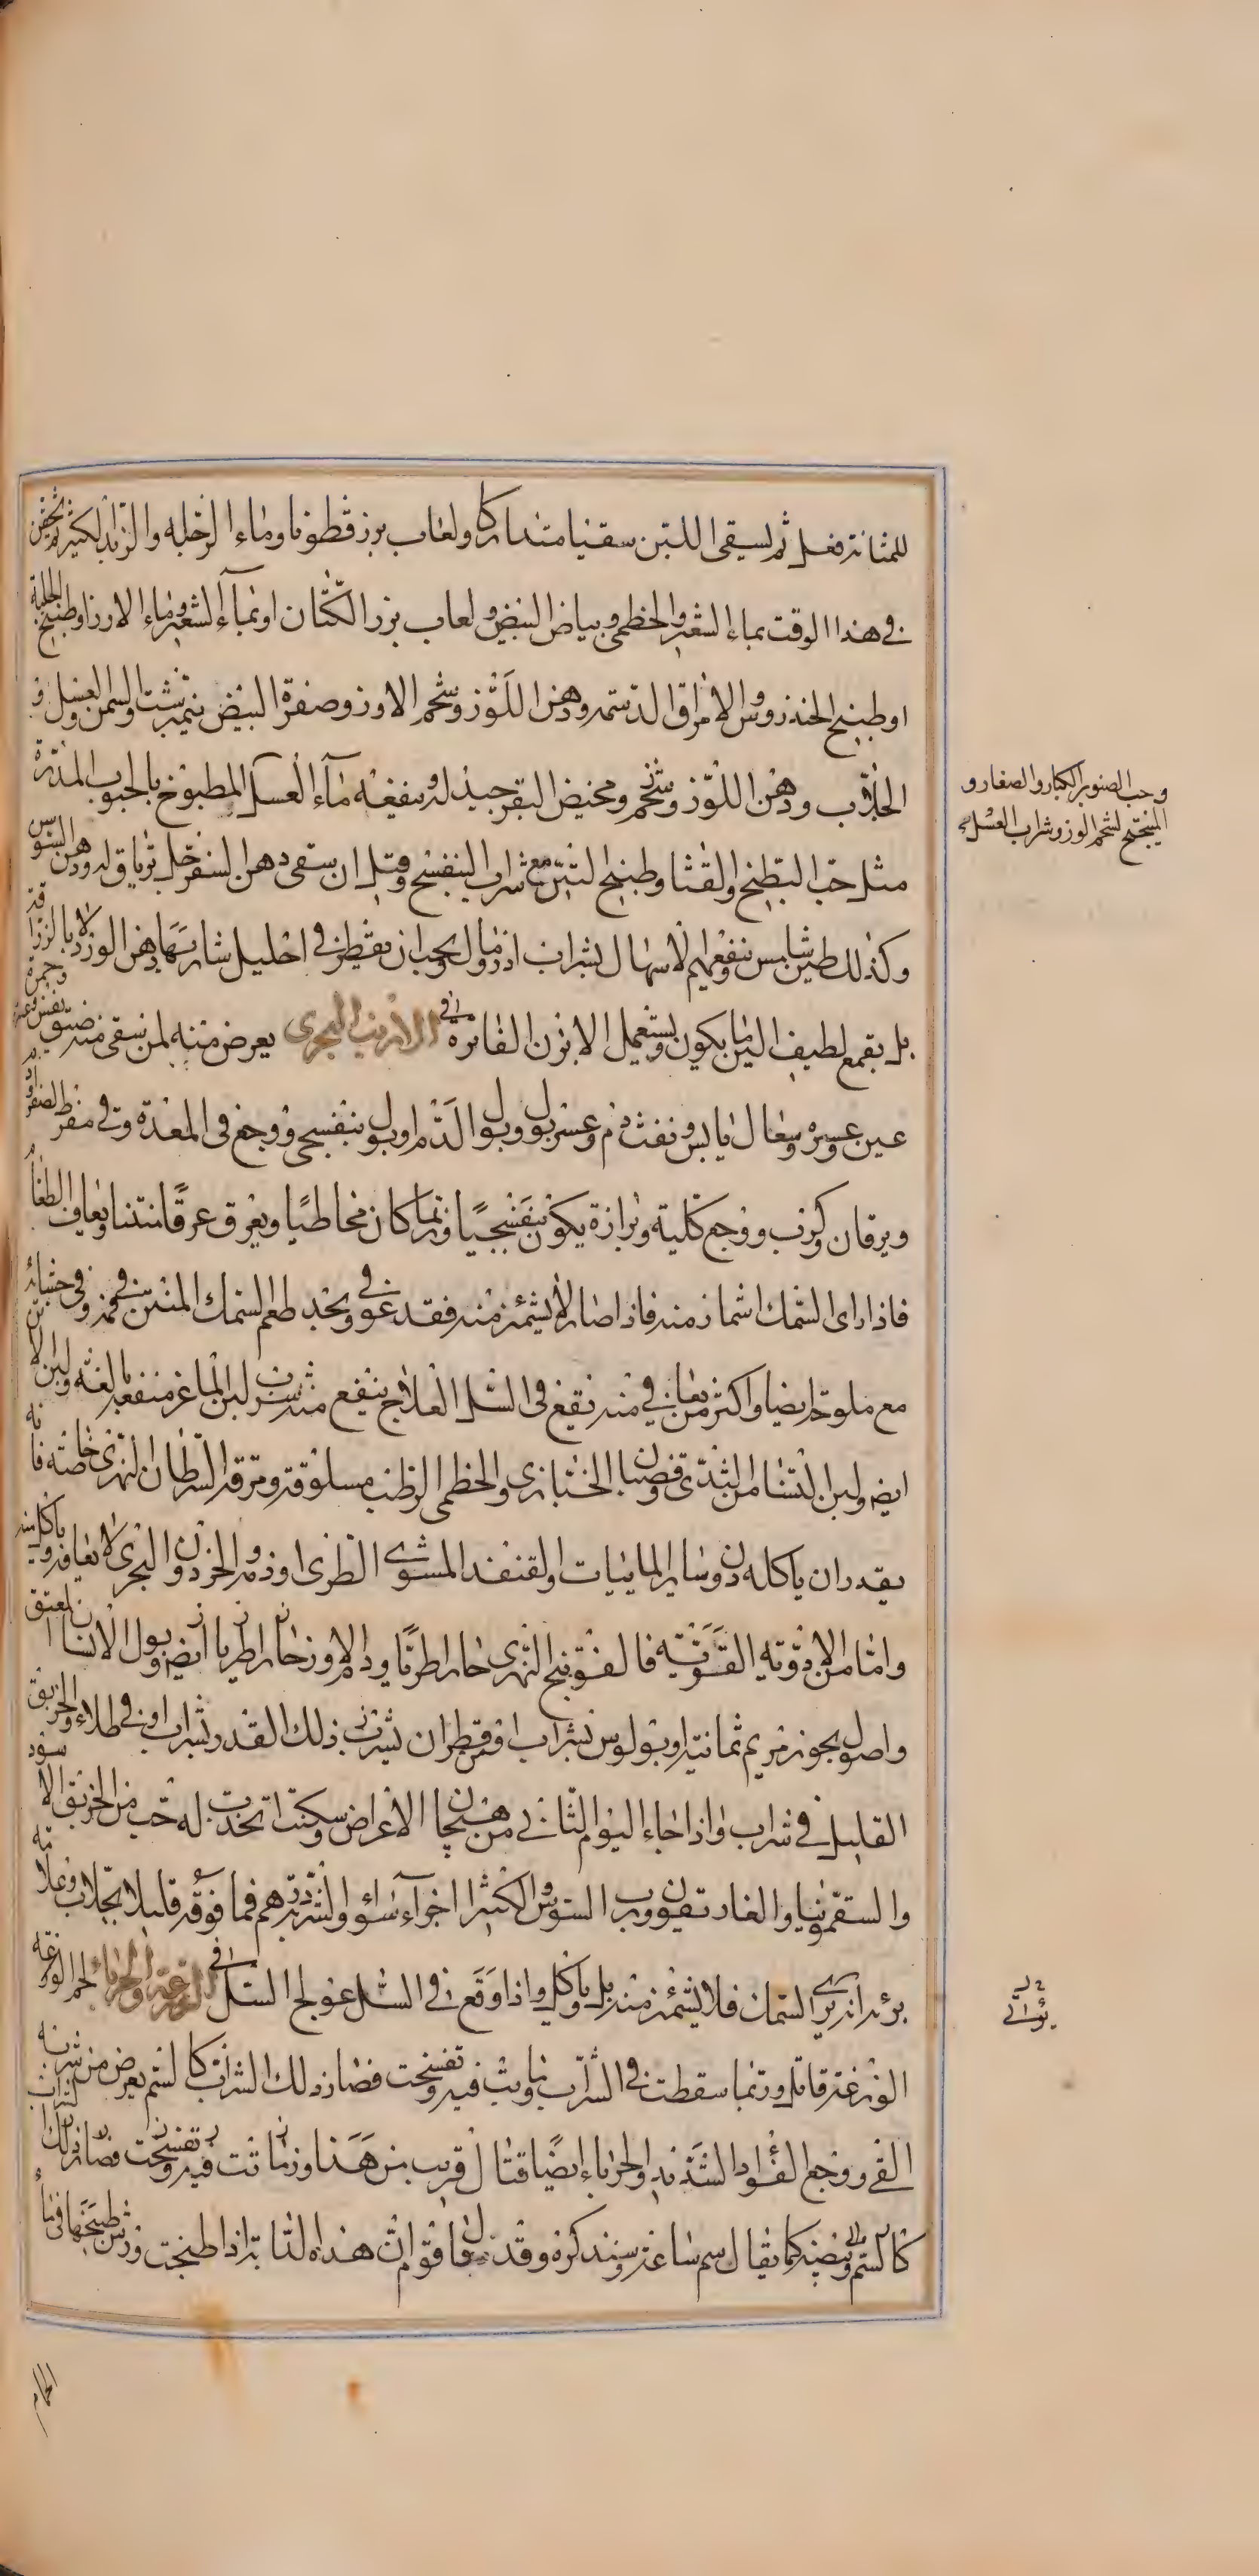 للمثانة فعل ثم يسقى اللبن سقيا متداركا ولعاب بزر قطونا وماء الرجلة والزبد الكثير ثم يحقن
في هذا الوقت بماء الشعير والخطمى وبياض البيض ولعاب بزر الكتان او بماء الشعير وماء الارز او طبيخ الحلبة
او طبيخ الخندروس والامراق الدسمة ودهن اللوز وشحم الاوز وصفرة البيض نيمبرشت والسمن والعسل و
الجلاب ودهن اللوز وشحم ومخيض البقر جيد له وينفعه ماء العسل المطبوخ بالحبوب المدرة
مثل حب البطيخ والقثا وطبيخ التين مع شراب البنفسج وقيل ان سقى دهن السفرجل ترياق له ودهن السوسن
وكذلك طين شاموس وينفعهم الاسهال بشراب اذرومالى ويجب ان يقطر في احليل شاربها دهن الورد لا بالزراقة
بل بقمع لطيف الين ما يكون ويستعمل الابزن الفاترة في الارنب البحرى يعرض منه لمن سقى منه ضيق نفس وحمرة
عين وعسره وسعال يابس ونفث دم وعسر بول وبول الدم او بول بنفسجى ووجع في المعدة وقى مفرط الصفراء
ويرقان وكرب ووجع كلية وبرازه يكون بنفسجيا وربما كان مخاطيا ويعرق عرقا منتنا ويعاف الطعام
فاذا راى السمك اشماز منه فاذا صار لا يشمئز منه فقد عوفى ويجد طعم السمك المنتن في فمه وفى جشائه
مع ملوحة ايضا واكثر من يعافى منه يقع في السل العلاج ينفع منه شرب لبن الماعز منفعة بالغة ولبن الاتن
ايضا ولبن النساء من الثدى وقضبان الخبازى والخطمى الرطب مسلوقة ومرقة السرطان النهرى خاصة فانه
يقدر ان ياكله دون سائر المائيات والقنفذ المشوى الطرى او دمه والحردون البحرى لا يعافه وياكله
واما من الادوية القوية فالفوتنج النهرى حارا طريا ودم الاوز حارا طريا ايضا وبول الانسان المعتق
واصول بخور مريم ثمانية اوبولوس بشراب او من قطران يشرب ذلك القدر بشراب او في طلاء والخربق
القليل في شراب واذا جاء اليوم الثانى من هيجان الاعراض وسكنت اتخذت له حب من الخربق الاسود
والسقمونيا والغاريقون ورب السوس والكثيرا اجزاء سواء والشربة درهم فما فوقه قليلا بجلاب وعلامة
برئه ان يرى السمك فلا يشمئز منه بل وياكل واذا وقع في السل عولج السل في الوزغة والحرباء لحم الوزغة
الوزغة قاتلة وربما سقطت في الشراب وماتت فيه وتفسخت فصار ذلك الشراب كالسم يعرض من شربه
القى ووجع الفؤاد الشديد والحرباء ايضا قتال قريب من هذا وربما ماتت فيه وتفسخت فصار ذلك الشراب
كالسم وبيضه كما يقال سم ساعة وسنذكره وقد قال قوم ان هذه الدابة اذا طبخت ورش طبيخها في ماء
الحمام
وحب الصنوبر الكبار والصغار و
الميبختج لشحم الوز وشراب العسل